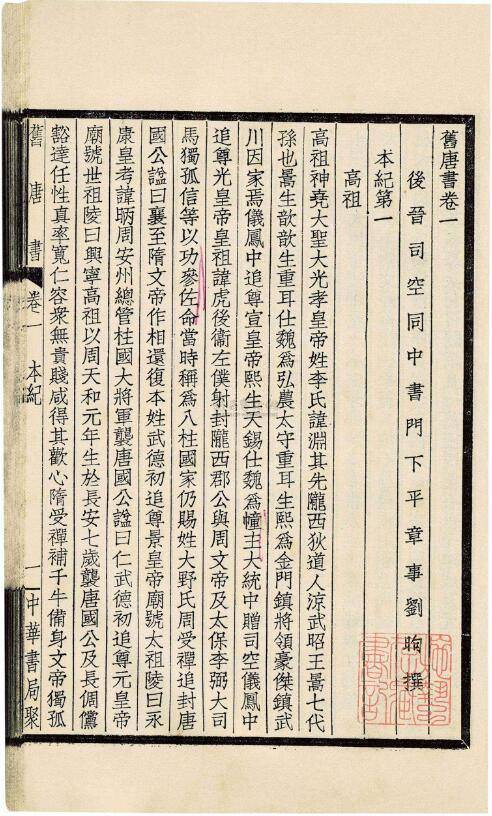 舊唐書卷一
後晉司空同中書門下平章事劉昫撰
本紀第一
高祖
高祖神堯大聖大光孝皇帝姓李氏諱淵其先隴西狄道人涼武昭王暠七代
孫也暠生歆歆生重耳仕魏爲弘農太守重耳生熙爲金門鎮將領豪傑鎮武
川因家焉儀鳳中追尊宣皇帝熙生天錫仕魏爲幢主大統中贈司空儀鳳中
追尊光皇帝皇祖諱虎後衞左僕射封隴西郡公與周文帝及太保李弼大司
馬獨孤信等以功參佐命當時稱爲八柱國家仍賜姓大野氏周受禪追封唐
國公諡曰襄至隋文帝作相還復本姓武德初追尊景皇帝廟號太祖陵曰永
康皇考諱昞周安州總管柱國大將軍襲唐國公諡曰仁武德初追尊元皇帝
廟號世祖陵曰興寧高祖以周天和元年生於長安七歲襲唐國公及長倜儻
豁達任性真率寬仁容衆無貴賤咸得其歡心隋受禪補千牛備身文帝獨孤
舊唐書 卷一 本紀 一 中華書局聚